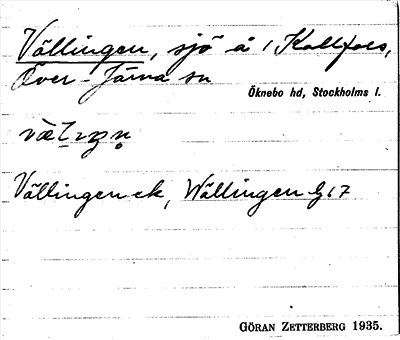 Vällingen, sjö å /Kallfors,
Över-Järna sn
Öknebo hd, Stockholms l.
Vällingen ek, Wällingen G17
GÖRAN ZETTERBERG 1935.